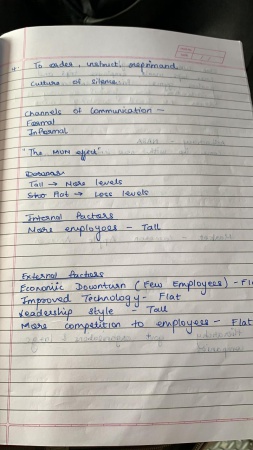 To order, instruct, reprimand
Culture of silence
Channels of Communication -
Formal
Informal
"The MUM effect"
Tall → More levels
Flat → Less levels
Internal factors
More employees - Tall
External factors
Economic Downturn (Few Employees) - Fl
Improved Technology - Flat
Leadership style - Tall
More competition to employees - Flat